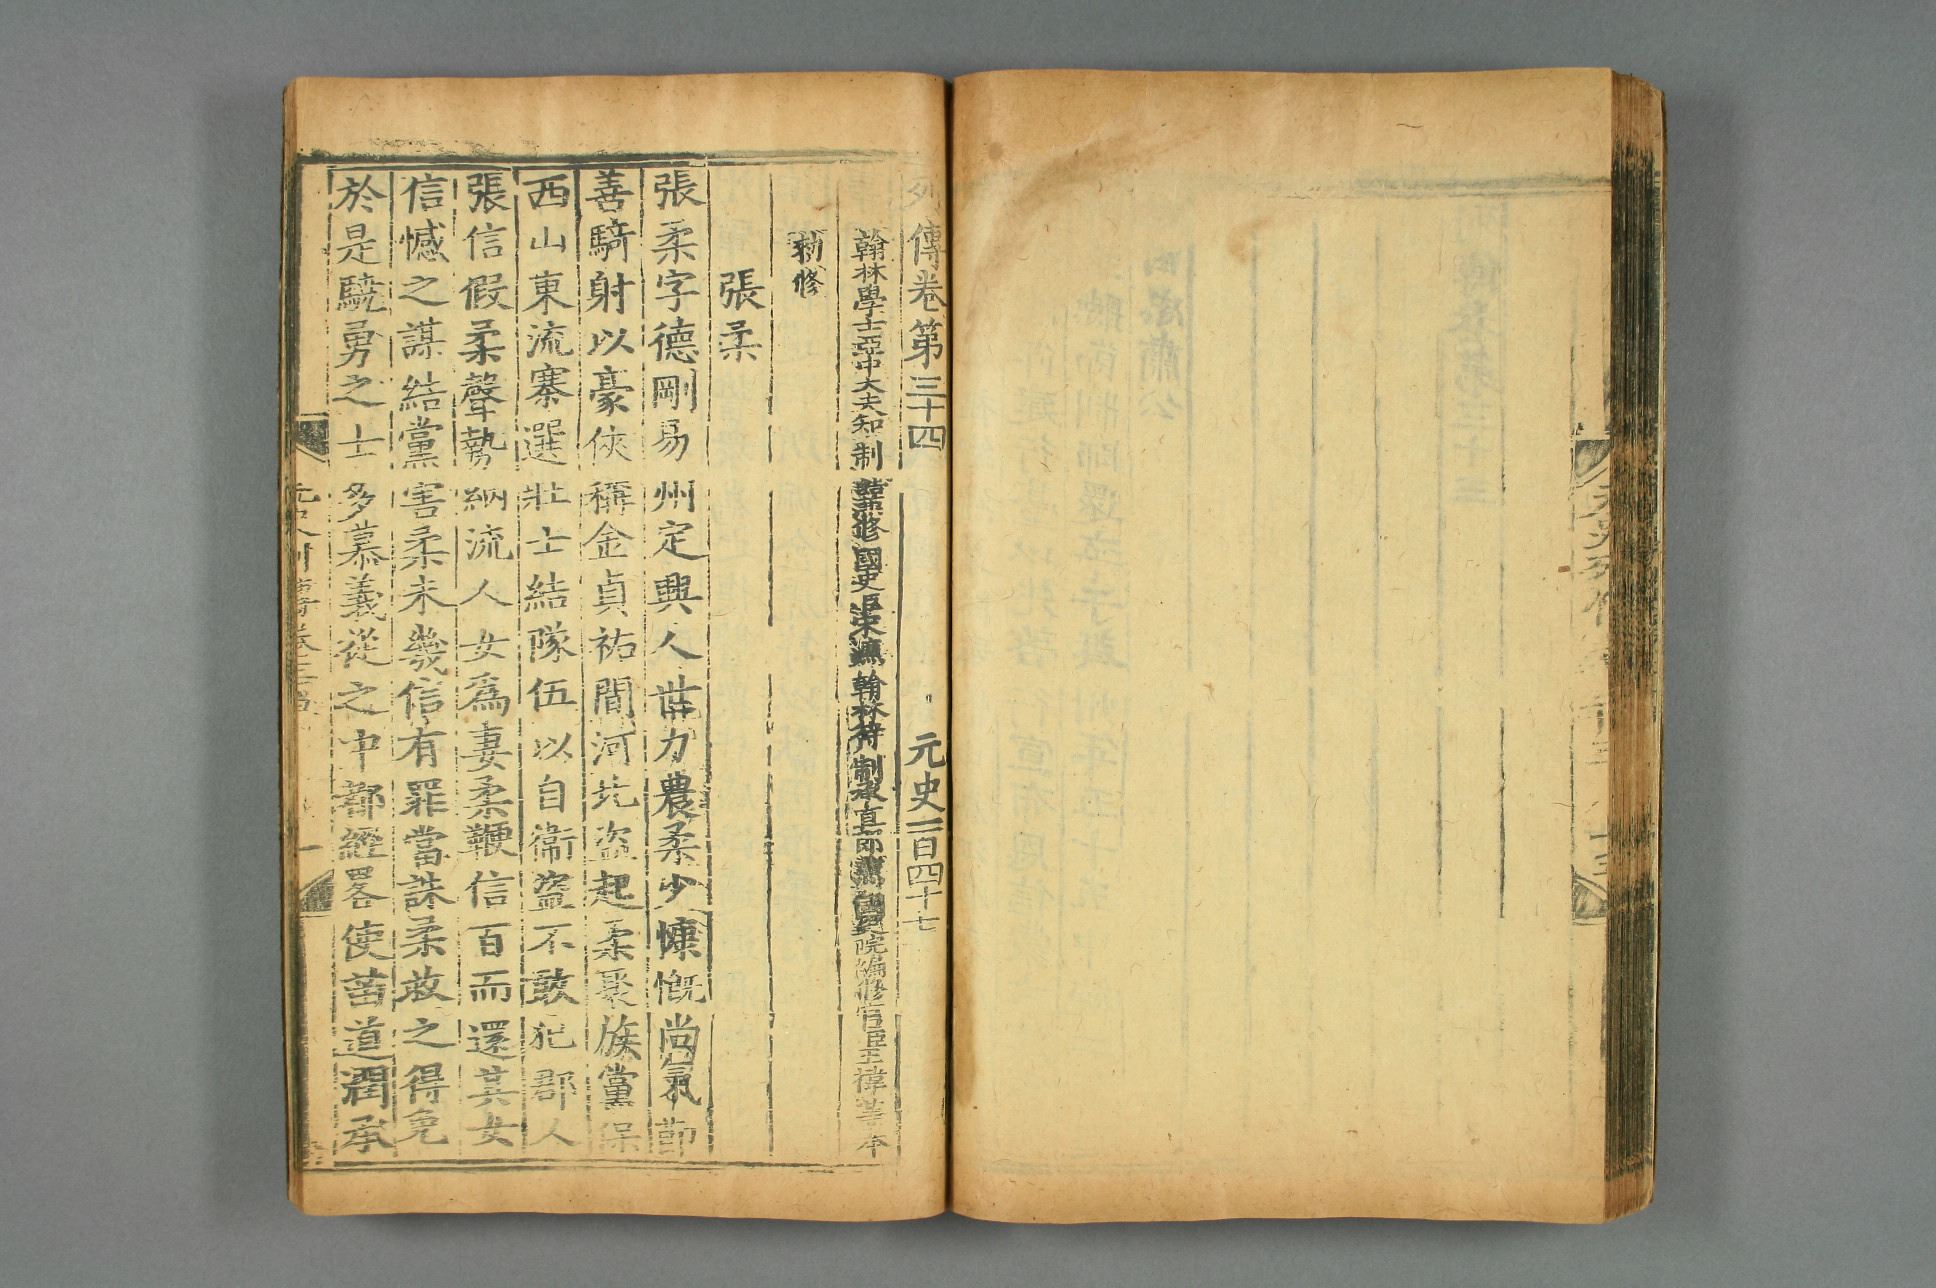 列傳卷第三十四 元史一百四十七
翰林學士亞中大夫知制誥兼修國史臣宋濂翰林待制承直郎兼國史院編修官臣王褘等奉
勑修
張柔
張柔字德剛易州定興人世力農柔少慷慨尚氣節
善騎射以豪俠稱金貞祐間河北盜起柔聚族黨保
西山東流寨選壯士結隊伍以自衛盜不敢犯郡人
張信假柔聲勢納流人女爲妻柔鞭信百而還其女
信憾之謀結黨害柔未幾信有罪當誅柔救之得免
於是驍勇之士多慕義從之中都經畧使苗道潤承